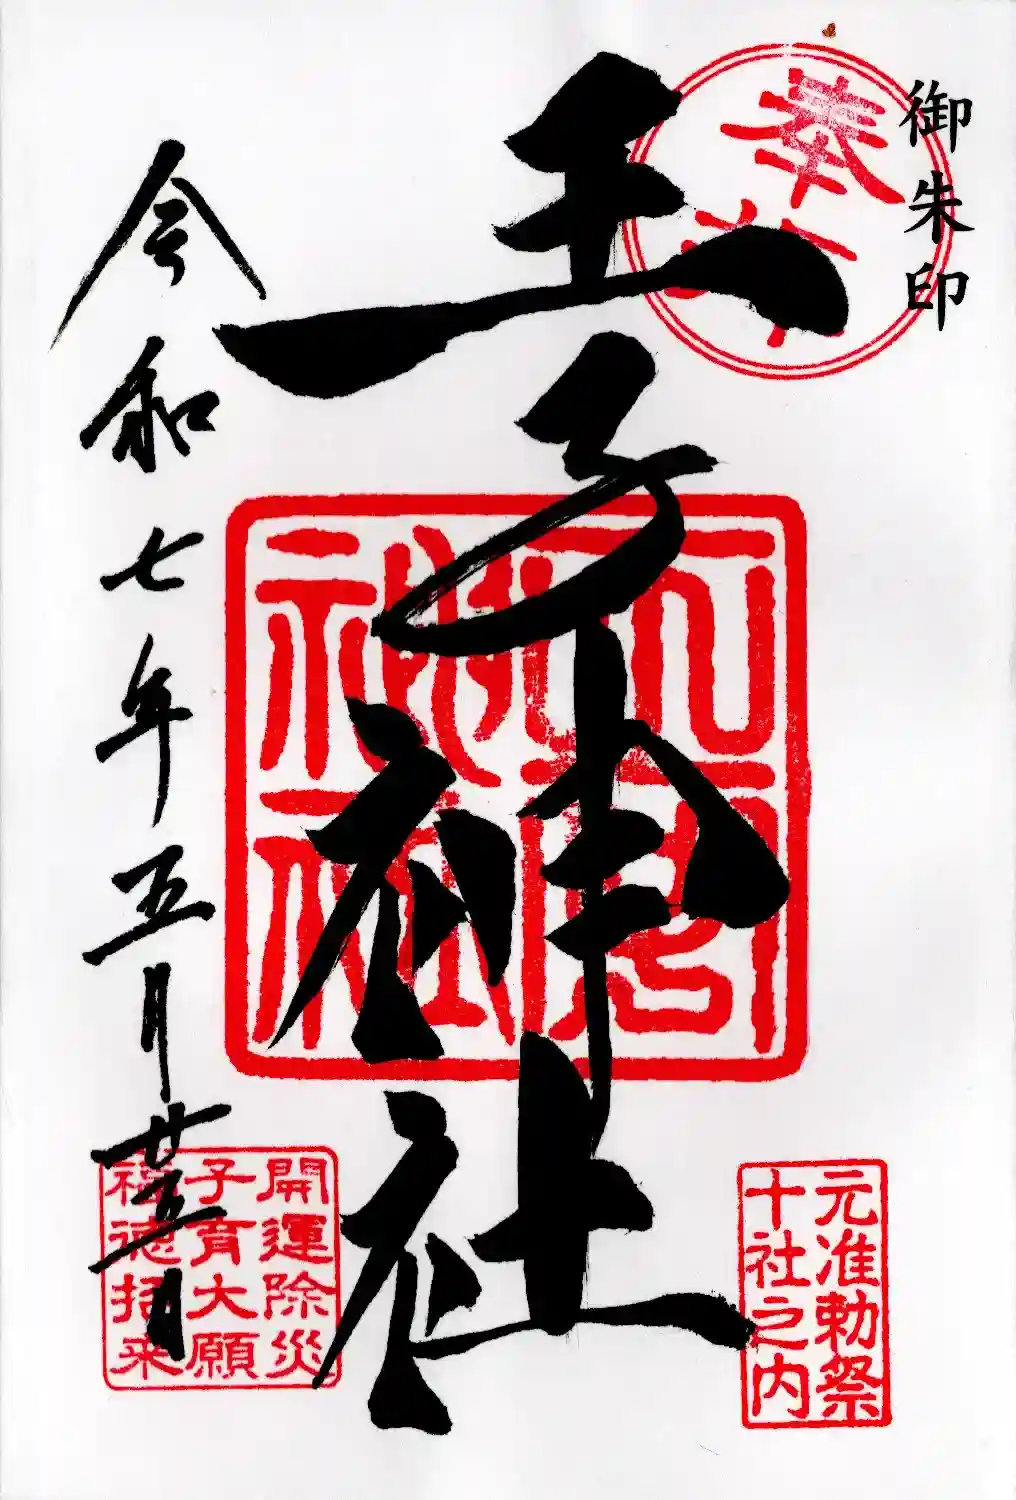 御朱印
奉拝
王子神社
王子神社
元准勅祭
十社之内
令和七年五月廿五日
開運除災
子育大願
福徳招来